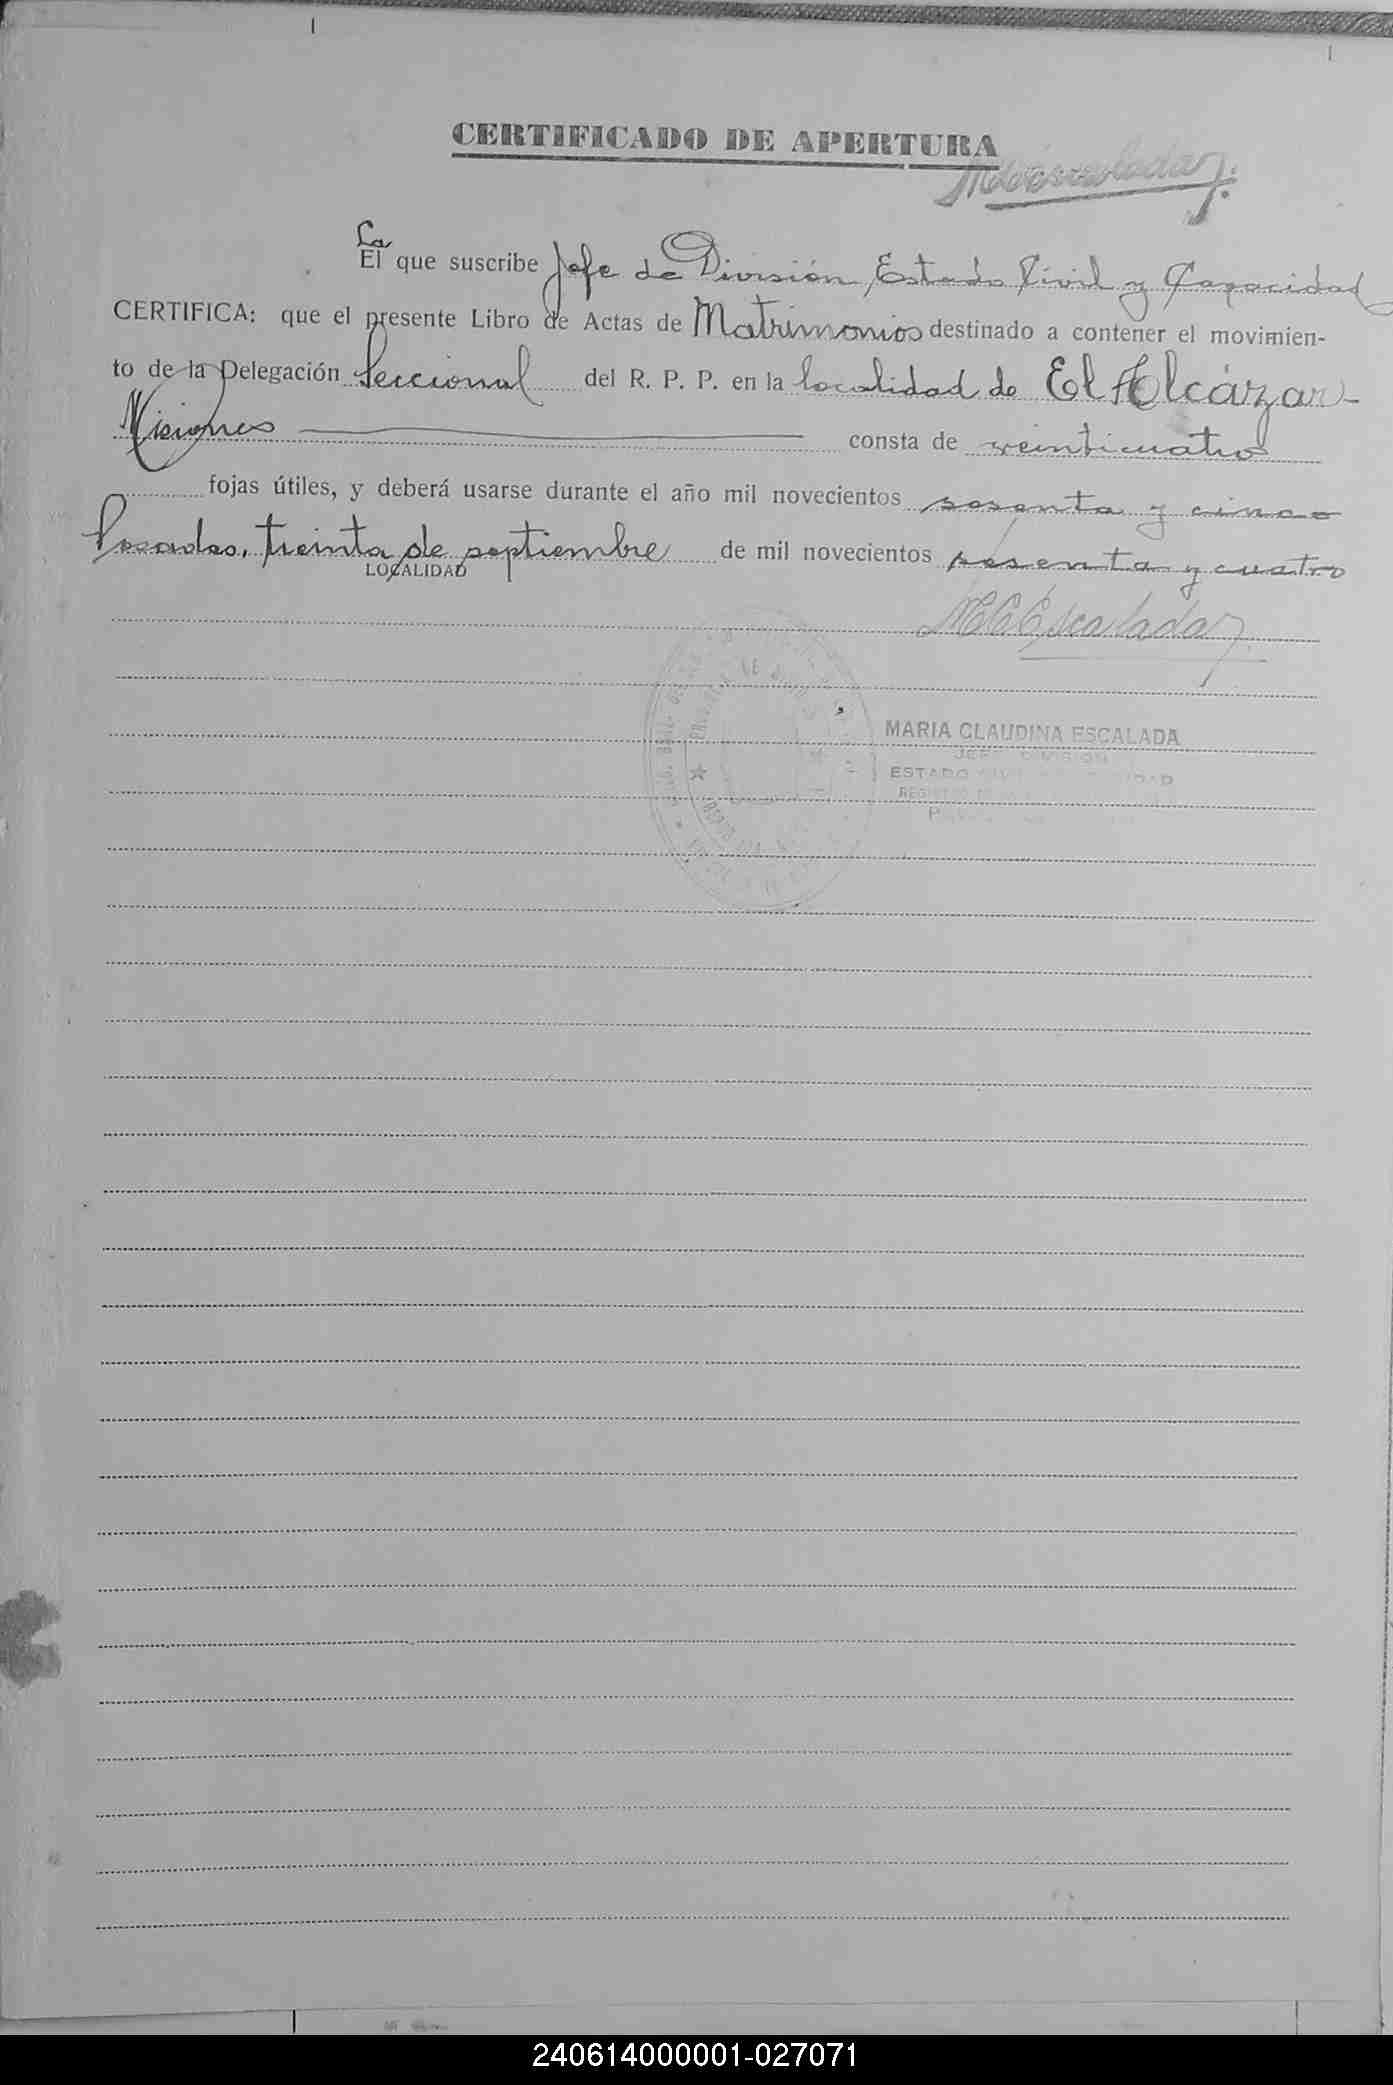 CERTIFICADO DE APERTURA
MCEscalada
La
El que suscribe Jefe de División, Estado Civil y Capacidad
CERTIFICA: que el presente Libro de Actas de Matrimonios destinado a contener el movimien-
to de la Delegación Seccional del R. P. P. en la localidad de El Alcázar-
Misiones consta de veinticuatro
fojas útiles, y deberá usarse durante el año mil novecientos sesenta y cinco
Posadas, treinta de septiembre de mil novecientos sesenta y cuatro
LOCALIDAD
MCEscalada
MARIA CLAUDINA ESCALADA
JEFE DIVISION
ESTADO
240614000001-027071